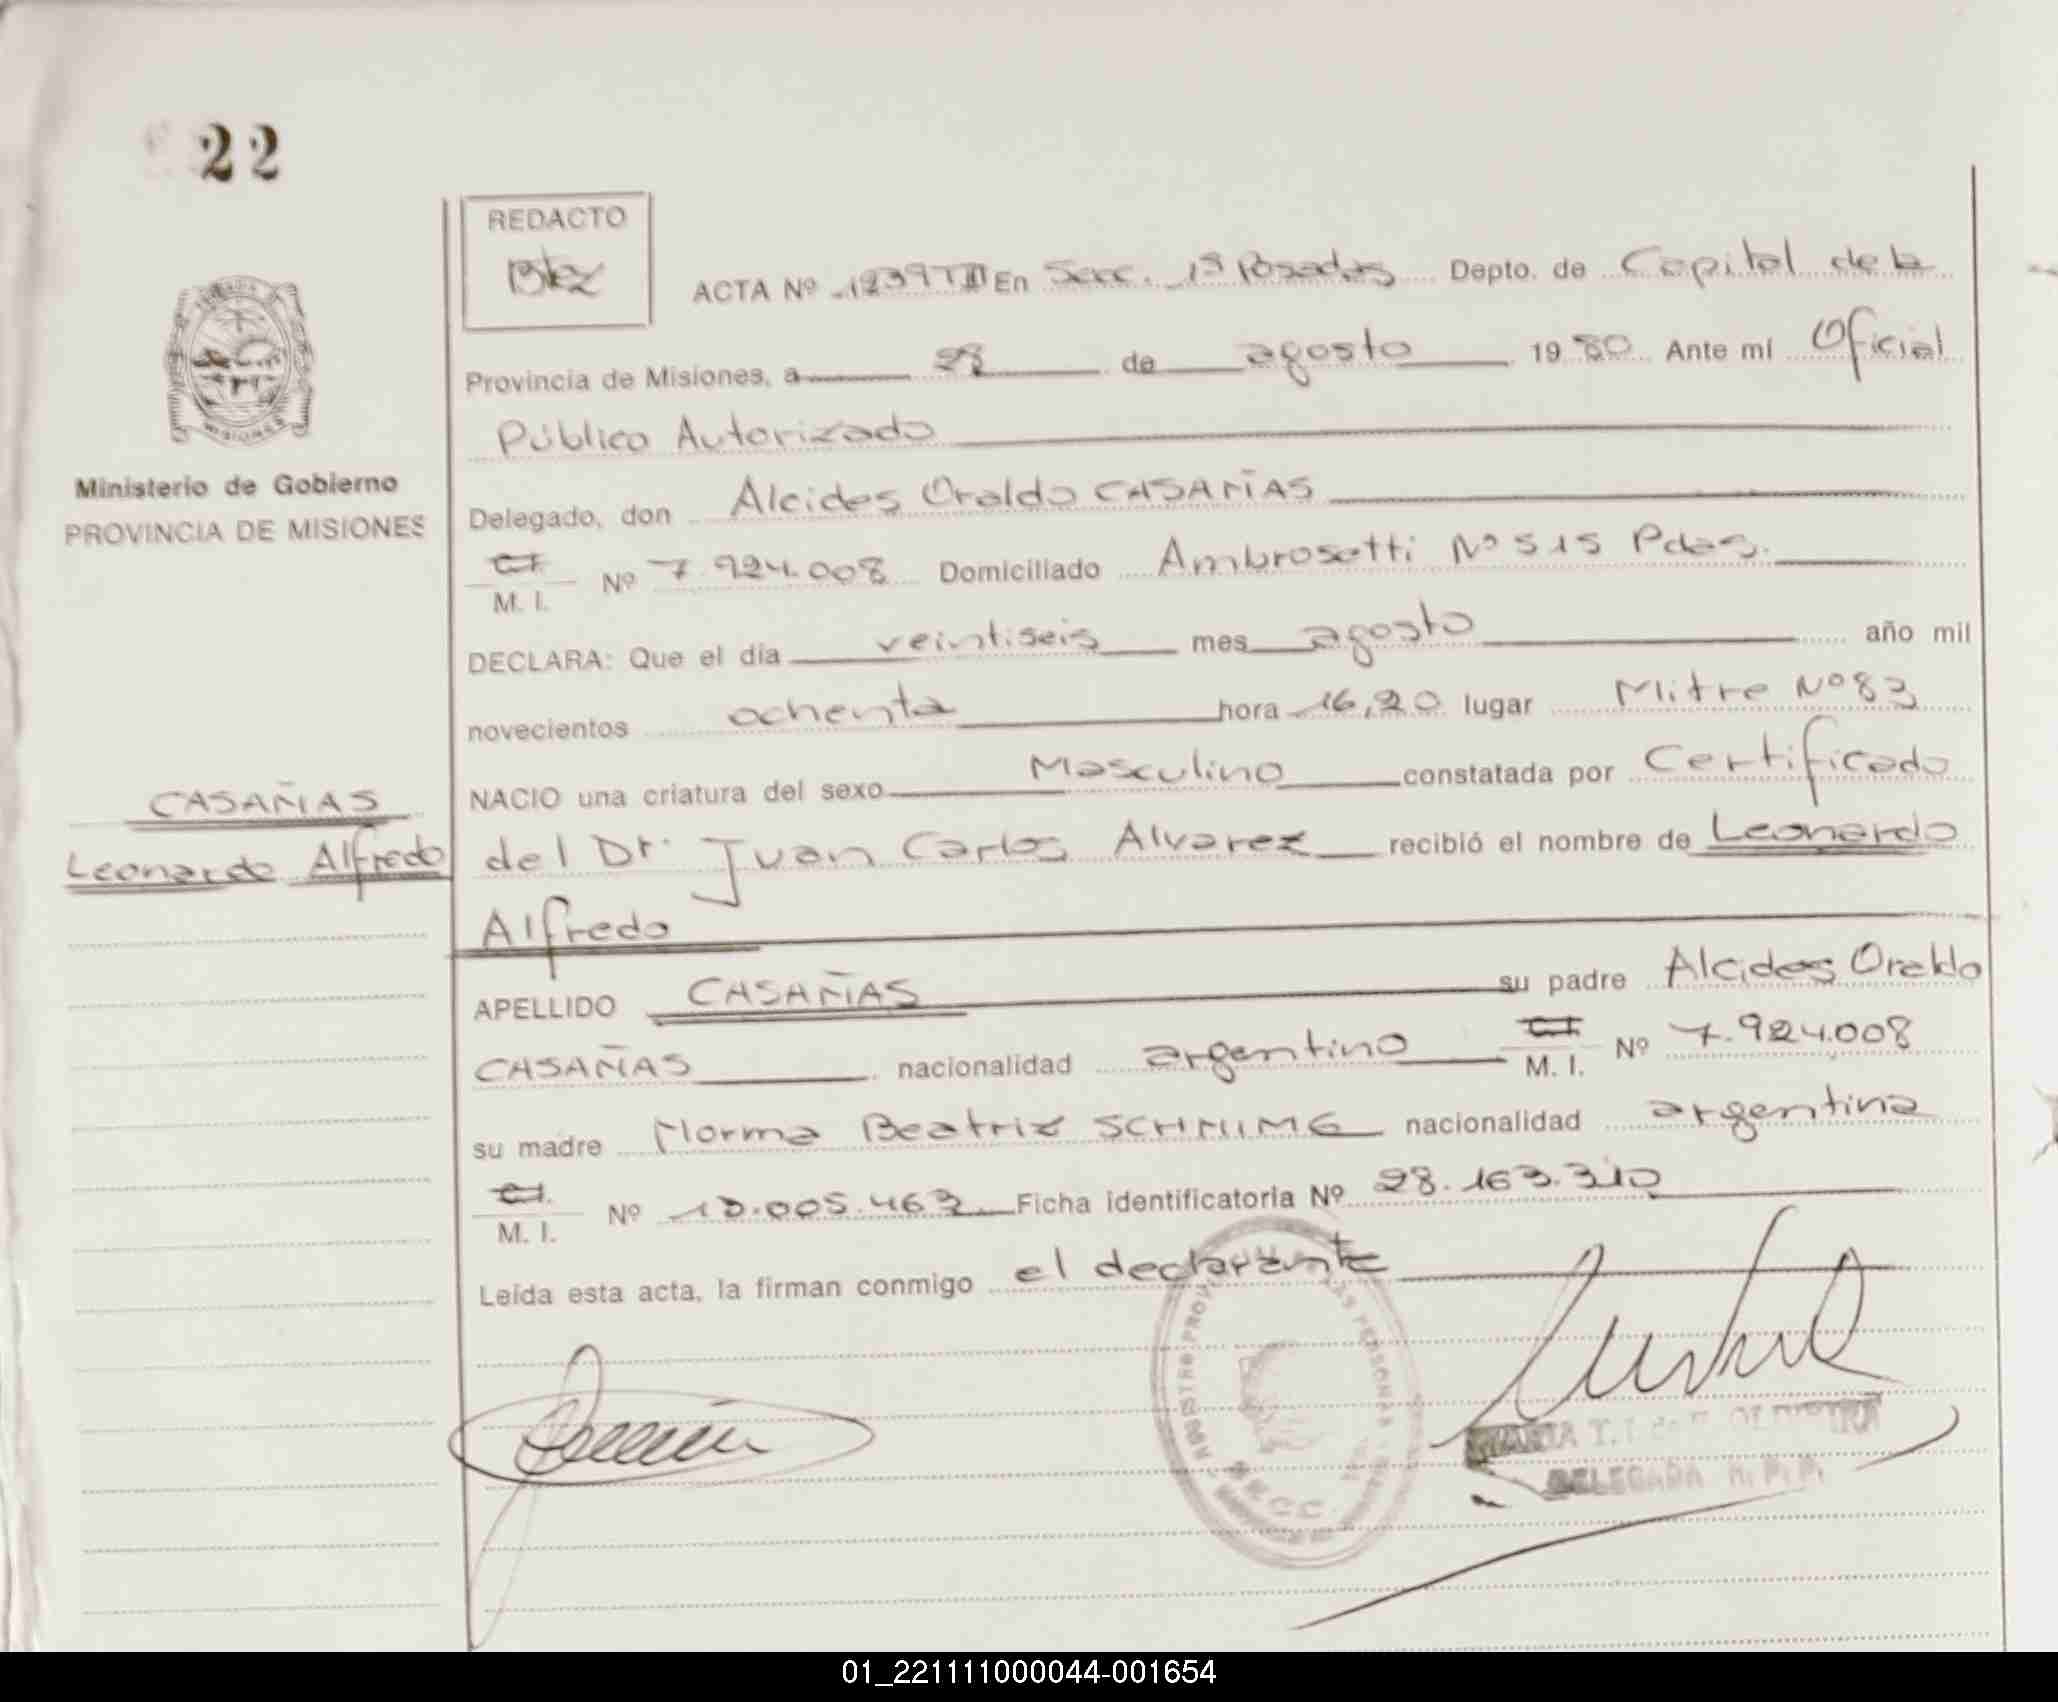 22
REDACTO
ACTA Nº 1239 TIII En Secc. 1ª Posadas Depto. de Capital de la
Provincia de Misiones, a 28 de agosto 1980 Ante mí Oficial
Público Autorizado
Ministerio de Gobierno
PROVINCIA DE MISIONES
Delegado, don Alcides Oraldo CASAÑAS
C.I.
M. I. Nº 7.924.008 Domiciliado Ambrosetti Nº 515 Pdas.
DECLARA: Que el día veintiseis mes agosto año mil
novecientos ochenta hora 16,20 lugar Mitre Nº 83
NACIO una criatura del sexo Masculino constatada por Certificado
CASAÑAS
Leonardo Alfredo
del Dr. Juan Carlos Alvarez recibió el nombre de Leonardo
Alfredo
APELLIDO CASAÑAS su padre Alcides Oraldo
CASAÑAS nacionalidad argentino C.I. M. I. Nº 7.924.008
su madre Norma Beatriz SCHNIMG nacionalidad argentina
C.I.
M. I. Nº 10.005.463 Ficha identificatoria Nº 28.163.310
Leída esta acta, la firman conmigo el declarante
DELEGADA
01_221111000044-001654